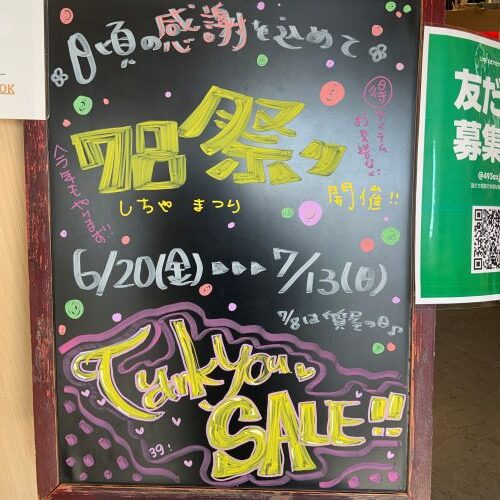 日頃の感謝を込めて
78祭り
しちや まつり
開催!!
得アイテム
お見逃しなく
今年もやります!!
6/20(金)▶▶▶7/13(日)
7/8は"質屋の日♪
Tank you
SALE!!
39!
OK
友だ
募集
@493axj